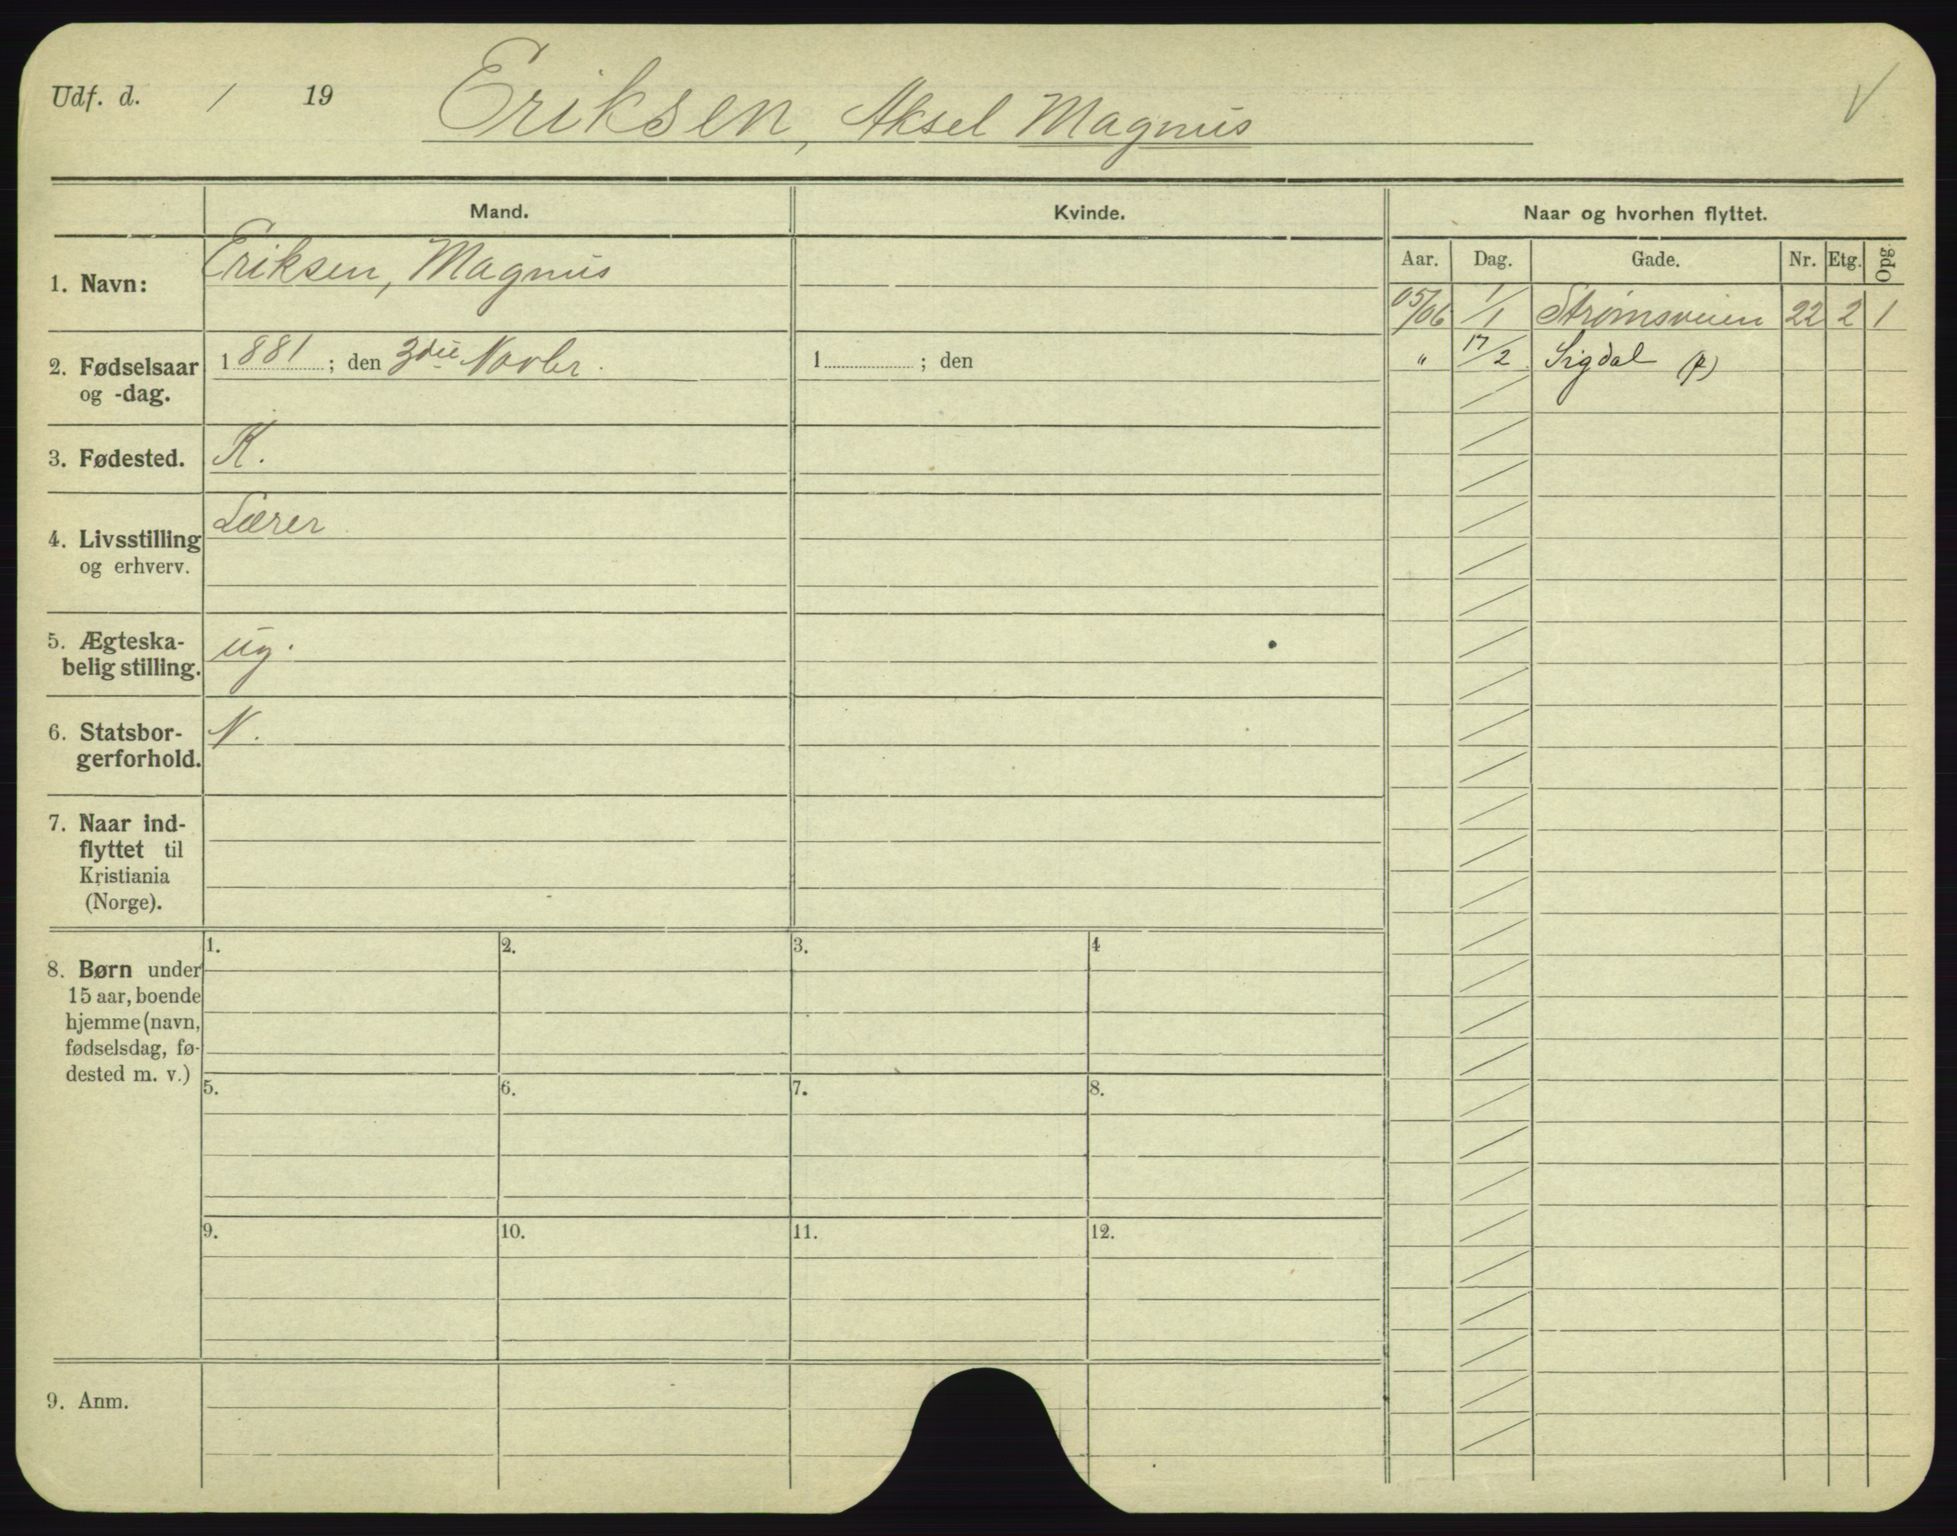 Udf. d. / 19 Eriksen, Aksel Magnus V
Mand. Kvinde. Naar og hvorhen flyttet.
Aar. Dag. Gade. Nr. Etg. Opg.
1. Navn: Eriksen, Magnus
05/06 1/1 Strømsveien 22 2 1
2. Fødselsaar 1881; den 3die Novbr. 1 ; den
og -dag.
" 17/2 Sigdal
3. Fødested. K.
4. Livsstilling Lærer
og erhverv.
5. Ægteska-
belig stilling. ug.
6. Statsbor- N.
gerforhold.
7. Naar ind-
flyttet til
Kristiania
(Norge).
8. Børn under
15 aar, boende
hjemme (navn,
fødselsdag, fø-
dested m. v.)
1. 2. 3. 4
5. 6. 7. 8.
9. 10. 11. 12.
9. Anm.